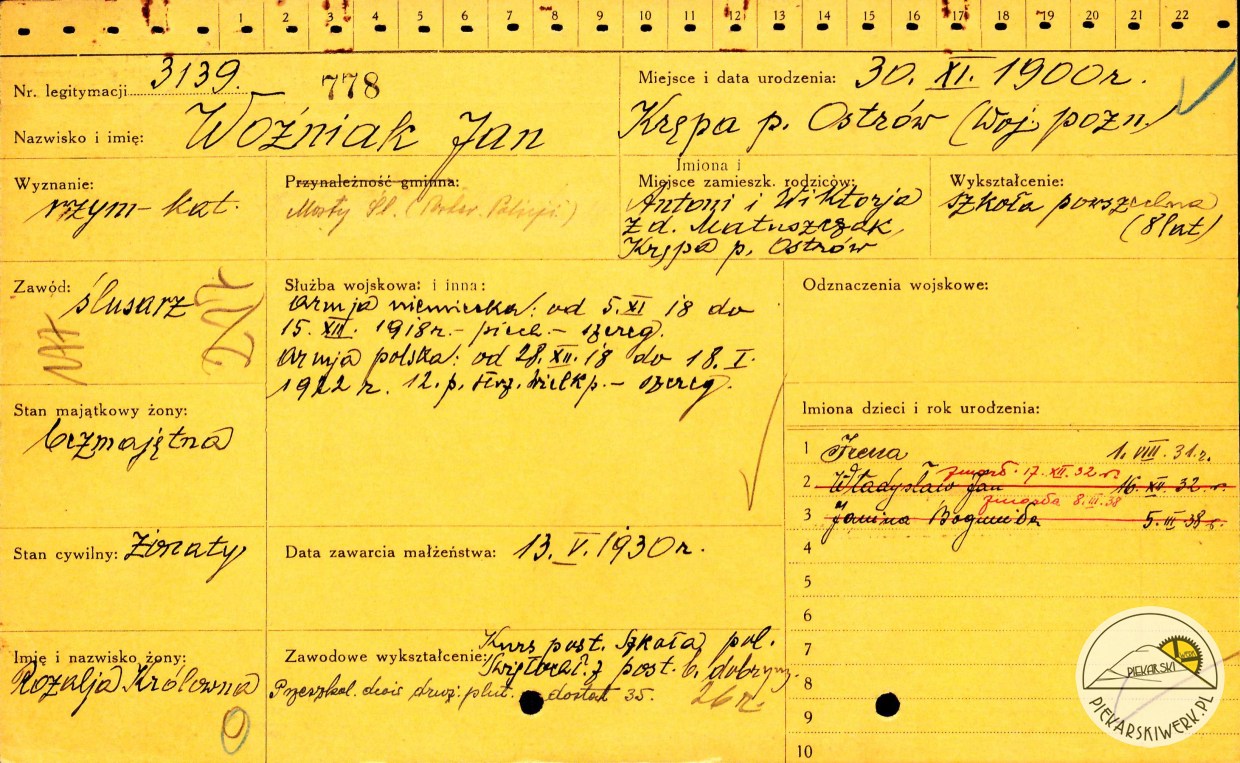 1 2 3 4 5 6 7 8 9 10 11 12 13 14 15 16 17 18 19 20 21 22
Nr. legitymacji 3139. 778
Nazwisko i imię: Woźniak Jan
Miejsce i data urodzenia: 30. XI. 1900 r.
Krępa p. Ostrów (Woj. pozn.)
Wyznanie:
rzym-kat.
Przynależność gminna:
Mosty Śl.
Imiona i
Miejsce zamieszk. rodziców:
Antoni i Wiktorja
z d. Matuszczak,
Krępa p. Ostrów
Wykształcenie:
szkoła powszechna
(8 lat)
Zawód:
ślusarz
Służba wojskowa: i inna:
Armja niemiecka: od 5. XI 18 do
15. XII. 1918 r. - piech. - szereg.
Armja polska: od 28. XII. 18 do 18. I.
1922 r. 12. p. strz. wielkp. - szereg.
Odznaczenia wojskowe:
Stan majątkowy żony:
bezmajętna
Imiona dzieci i rok urodzenia:
1 Irena 1. VIII. 31. r.
zmarł. 17. XII. 32 r.
2 Władysław Jan 16. XII. 32. r.
zmarła 8. III. 38
3 Janina Bogumiła 5. III 38 r.
4
5
6
7
8
9
10
Stan cywilny: żonaty
Data zawarcia małżeństwa: 13. V. 1930 r.
Imię i nazwisko żony:
Rozalja Królowna
0
Zawodowe wykształcenie:
Kurs post. Szkoła pol.
Święt z post. b. dobrym.
Przeszkol. druż. plut. dostat 35. 26 r.
PIEKARSKI WERK
PIEKARSKIWERK.PL